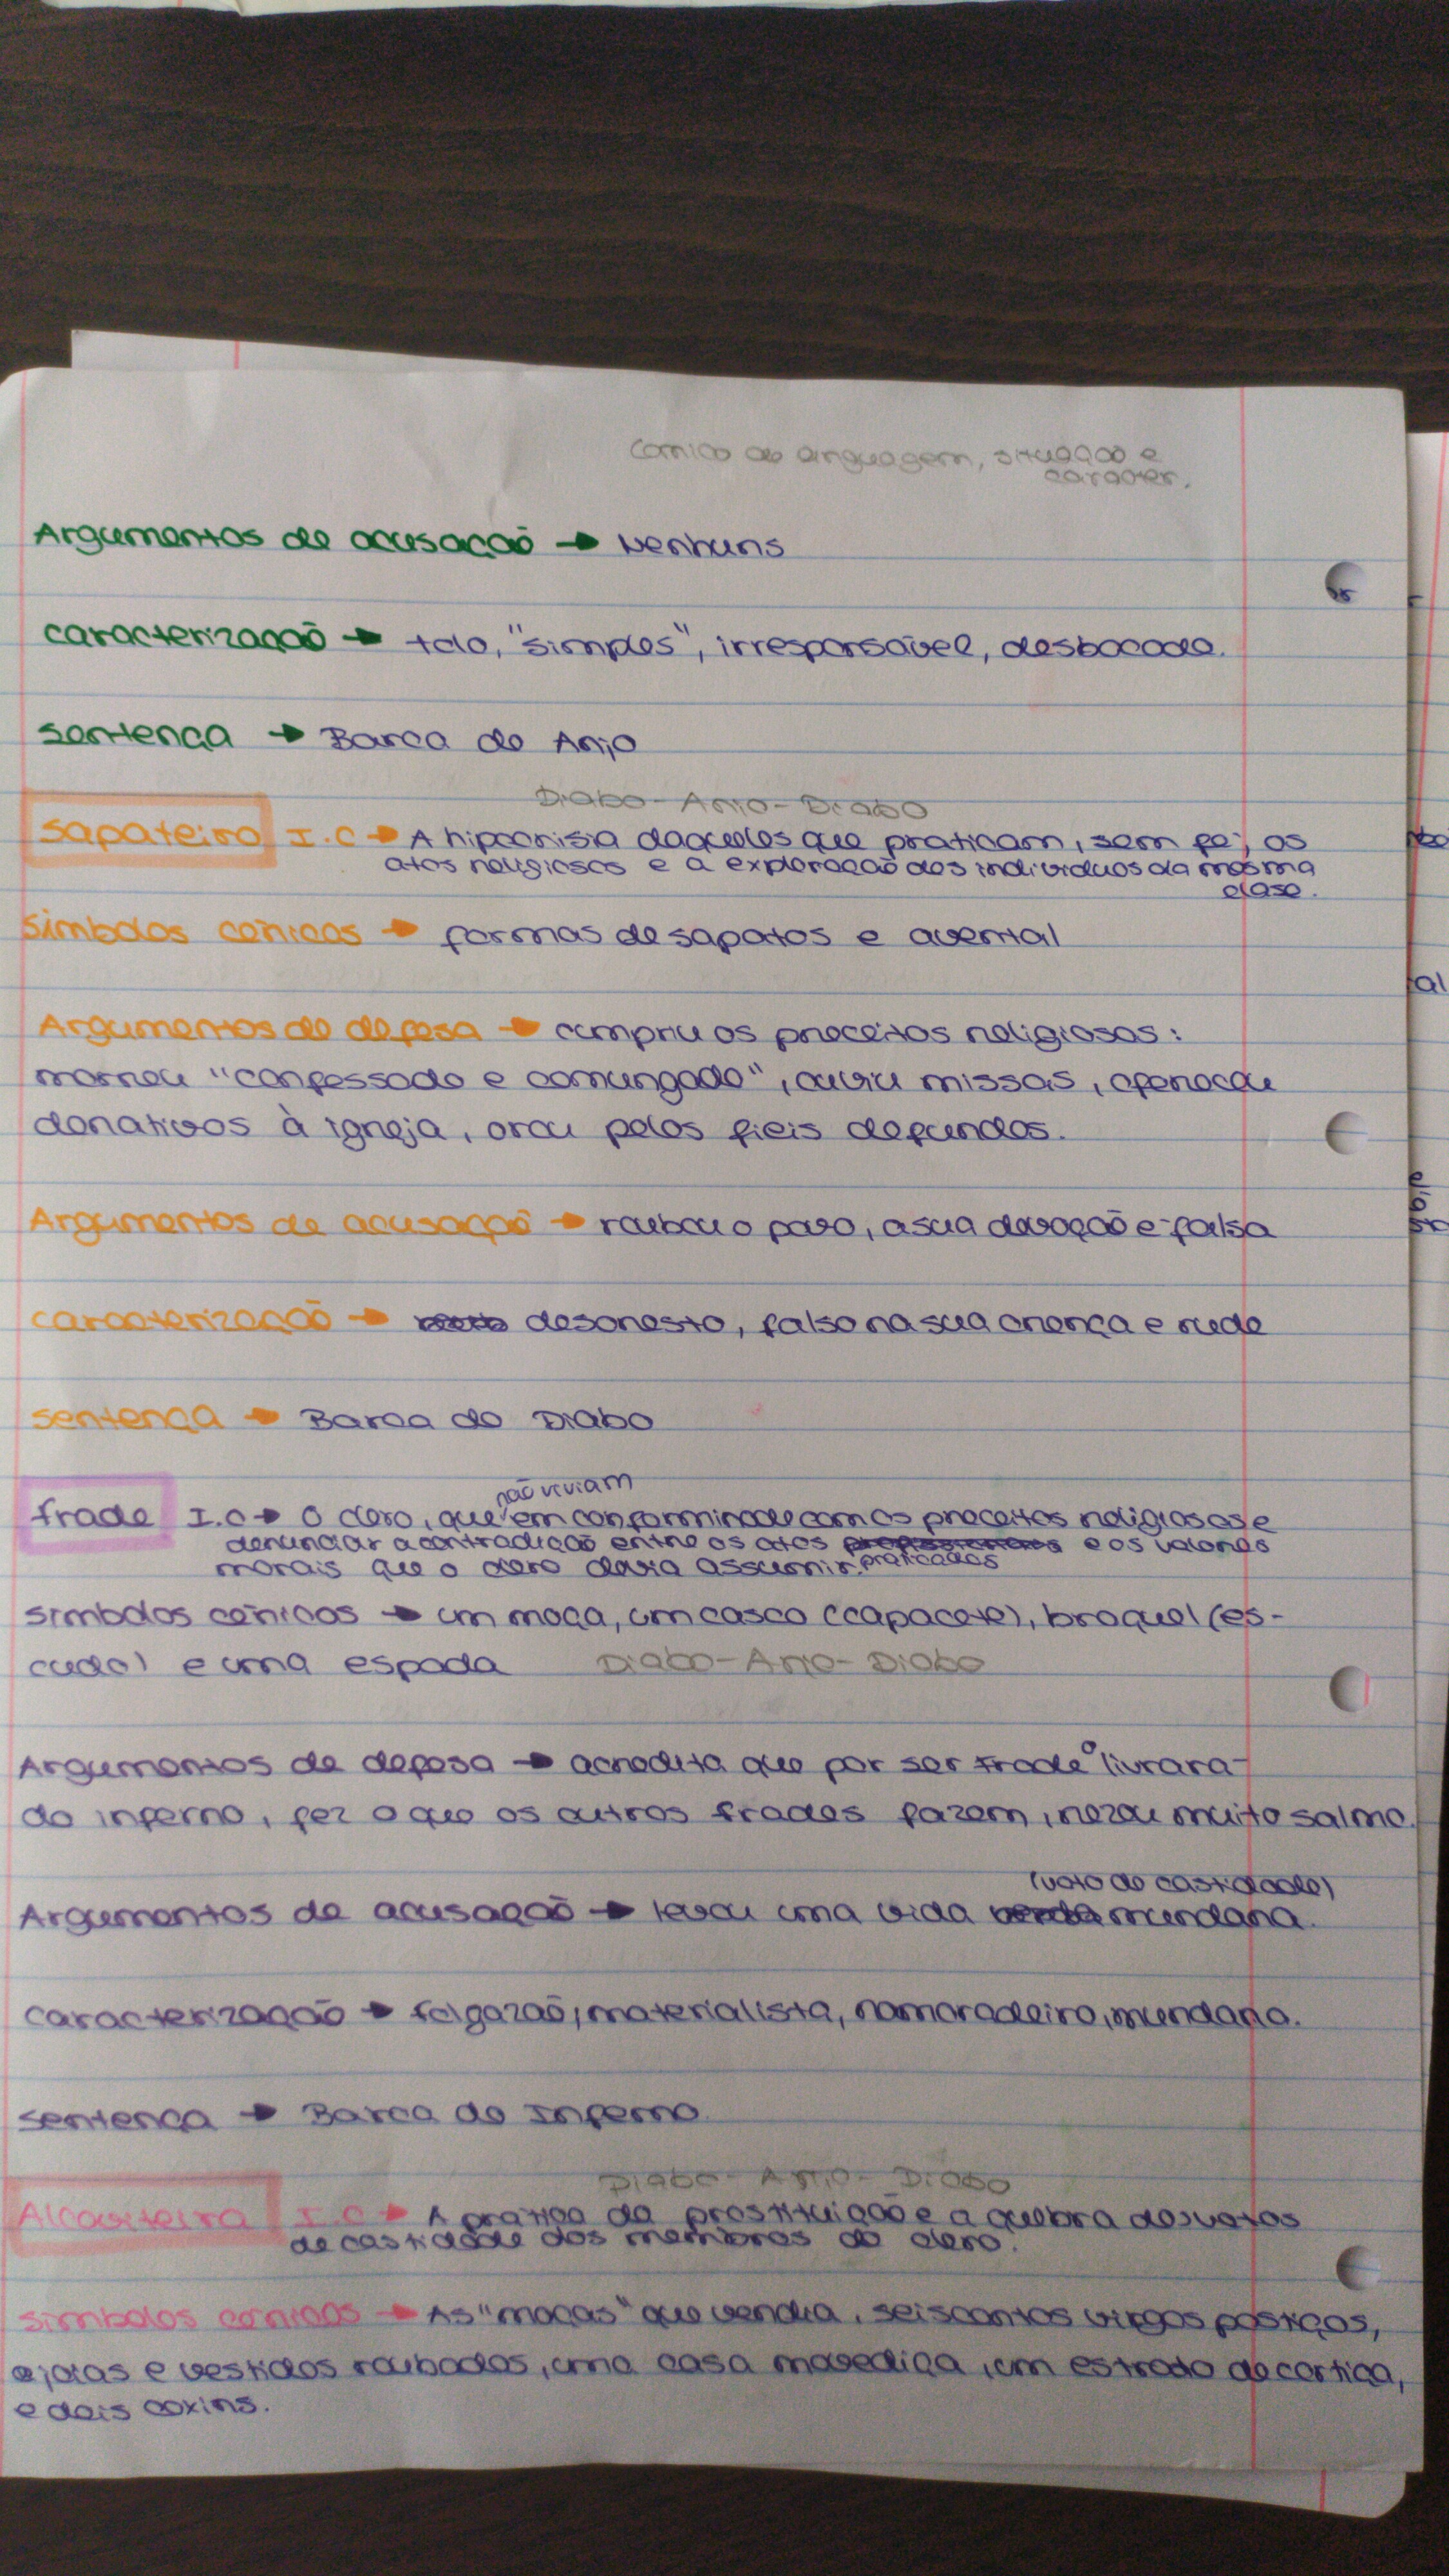 Comico de linguagem, situação e
caracter.
Argumentos de acusação → Nenhuns
caracterização → tolo, "simples", irresponsável, desbocado.
sentença → Barca do Anjo
Diabo - Anjo - Diabo
Sapateiro I.C → A hipocrisia daqueles que praticam, sem fé, os
atos religiosos e a exploração dos individuos da mesma
clase.
Simbolos cénicos → formas de sapatos e avental
Argumentos de defesa → cumpriu os preceitos religiosos:
morreu "confessado e comungado", ouviu missas, ofereceu
donativos à igreja, orou pelos fieis defundos.
Argumentos de acusação → roubou o povo, a sua devoção é falsa
caracterização → desonesto, falso na sua crença e rude
sentença → Barca do Diabo
não viviam
frade I.C → O clero, que em conforminade com os preceitos religiosos e
denunciar a contradição entre os atos e os valores
morais que o clero devia assumir. praticados
simbolos cénicos → um moça, um casco (capacete), broquel (es-
cudo) e uma espada Diabo - Anjo - Diabo
Argumentos de defesa → acredita que por ser frade o livrara
do inferno, fez o que os outros frades fazem, rezou muito salmo.
(voto de castidade)
Argumentos de acusação → levou uma vida mundana.
caracterização → folgazão, materialista, namoradeiro, mundano.
sentença → Barca do Inferno
Diabo - Anjo - Diabo
Alcoviteira I.C → A pratica da prostituição e a quebra dos votos
de castidade dos membros do clero.
simbolos cénicos → As "moças" que vendia, seiscentos virgos postiços,
e joias e vestidos roubados, uma casa movediça, um estrado de cortiça,
e dois coxins.